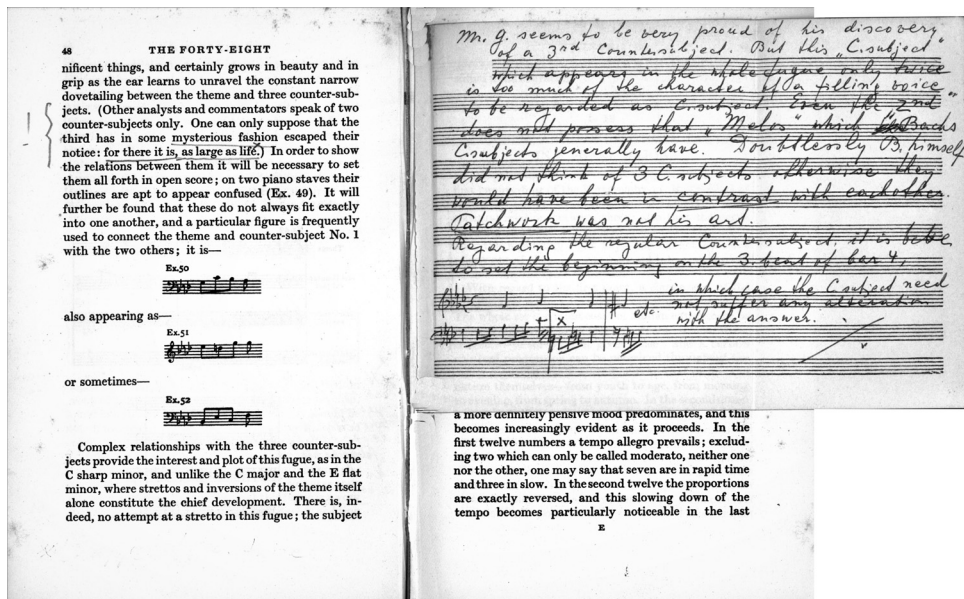 48 THE FORTY-EIGHT
nificent things, and certainly grows in beauty and in
grip as the ear learns to unravel the constant narrow
dovetailing between the theme and three counter-sub-
jects. (Other analysts and commentators speak of two
counter-subjects only. One can only suppose that the
third has in some mysterious fashion escaped their
notice: for there it is, as large as life.) In order to show
the relations between them it will be necessary to set
them all forth in open score; on two piano staves their
outlines are apt to appear confused (Ex. 49). It will
further be found that these do not always fit exactly
into one another, and a particular figure is frequently
used to connect the theme and counter-subject No. 1
with the two others; it is—
Ex.50
also appearing as—
Ex.51
or sometimes—
Ex.52
Complex relationships with the three counter-sub-
jects provide the interest and plot of this fugue, as in the
C sharp minor, and unlike the C major and the E flat
minor, where strettos and inversions of the theme itself
alone constitute the chief development. There is, in-
deed, no attempt at a stretto in this fugue; the subject
Mr. G. seems to be very proud of his discovery
of a 3rd Countersubject. But this „C.subject"
which appears in the whole fugue only twice
is too much of the character of a filling voice
to be regarded as C.subject. Even the 2nd"
does not possess that „Melos" which Bachs
C.subjects generally have. Doubtlessly B. himself
did not think of 3 C.subjects otherwise they
would have been in contrast with eachother.
Patchwork was not his art.
Regarding the regular Countersubject, it is better
to set the beginning on the 3. beat of bar 4,
in which case the C.subject need
not suffer any alteration
with the answer.
etc.
x
a more definitely pensive mood predominates, and this
becomes increasingly evident as it proceeds. In the
first twelve numbers a tempo allegro prevails; exclud-
ing two which can only be called moderato, neither one
nor the other, one may say that seven are in rapid time
and three in slow. In the second twelve the proportions
are exactly reversed, and this slowing down of the
tempo becomes particularly noticeable in the last
E